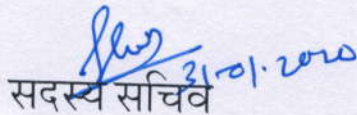 31-01-2020
सदस्य सचिव